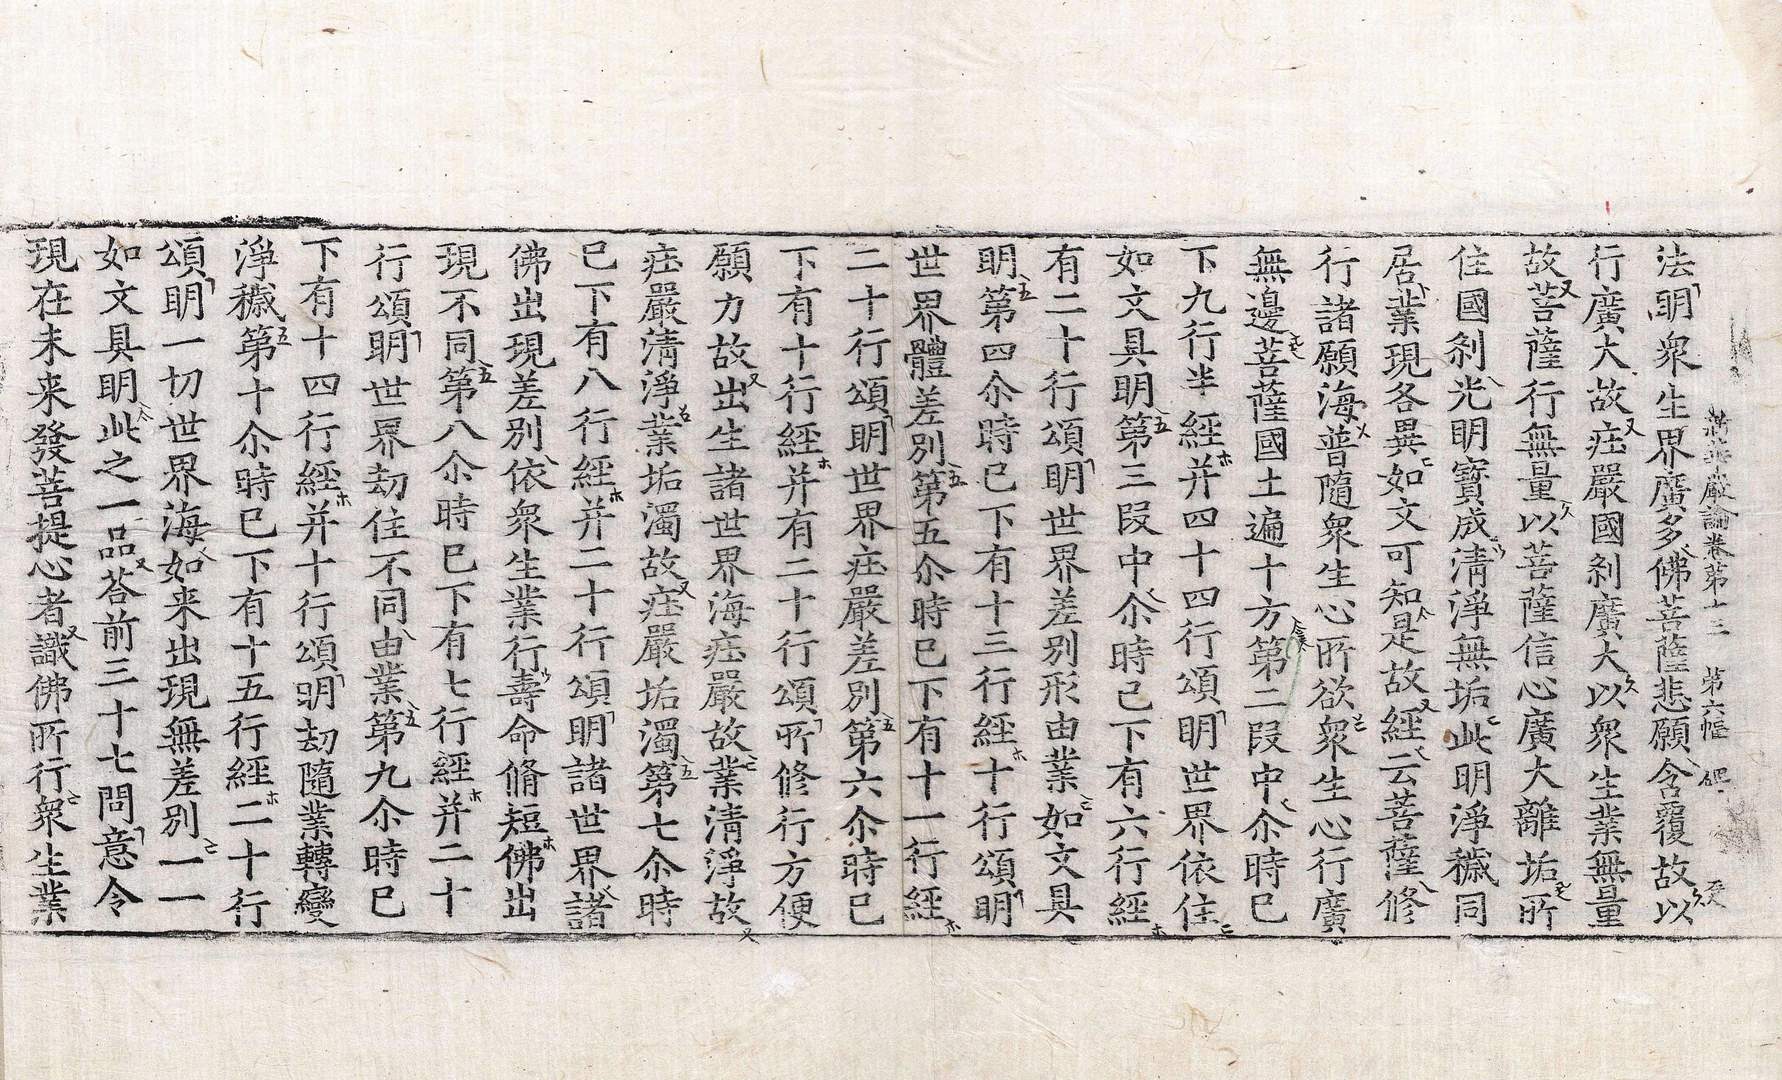 新華嚴論卷第十三　第六幅
法明衆生界廣多佛菩薩悲願含覆故以
行廣大故㽵嚴國剎廣大以衆生業無量
故菩薩行無量以菩薩信心廣大離垢所
住國剎光明寶成清淨無垢此明淨穢同
居業現各異如文可知是故經云菩薩修
行諸願海普隨衆生心所欲衆生心行廣
無邊菩薩國土遍十方第二段中尒時已
下九行半經并四十四行頌明世界依住
如文具明第三段中尒時已下有六行經
有二十行頌明世界差別形由業如文具
明第四尒時已下有十三行經十行頌明
世界體差別第五尒時已下有十一行經
二十行頌明世界㽵嚴差別第六尒時已
下有十行經并有二十行頌所修行方便
願力故出生諸世界海㽵嚴故業清淨故
㽵嚴清淨業垢濁故㽵嚴垢濁第七尒時
已下有八行經并二十行頌明諸世界諸
佛出現差別依衆生業行壽命脩短佛出
現不同第八尒時已下有七行經并二十
行頌明世界劫住不同由業第九尒時已
下有十四行經并十行頌明劫隨業轉變
淨穢第十尒時已下有十五行經二十行
頌明一切世界海如来出現無差別一一
如文具明此之一品荅前三十七問意令
現在未来發菩提心者識佛所行衆生業